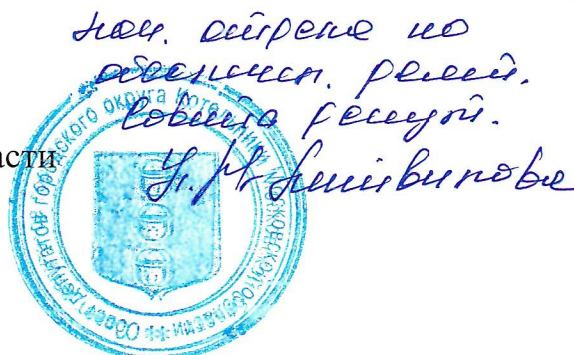 нач. отдела по
обеспечен. деят.
Совета депут.
асти
И. М. Литвинова
Совет депутатов городского округа Котельники Московской области